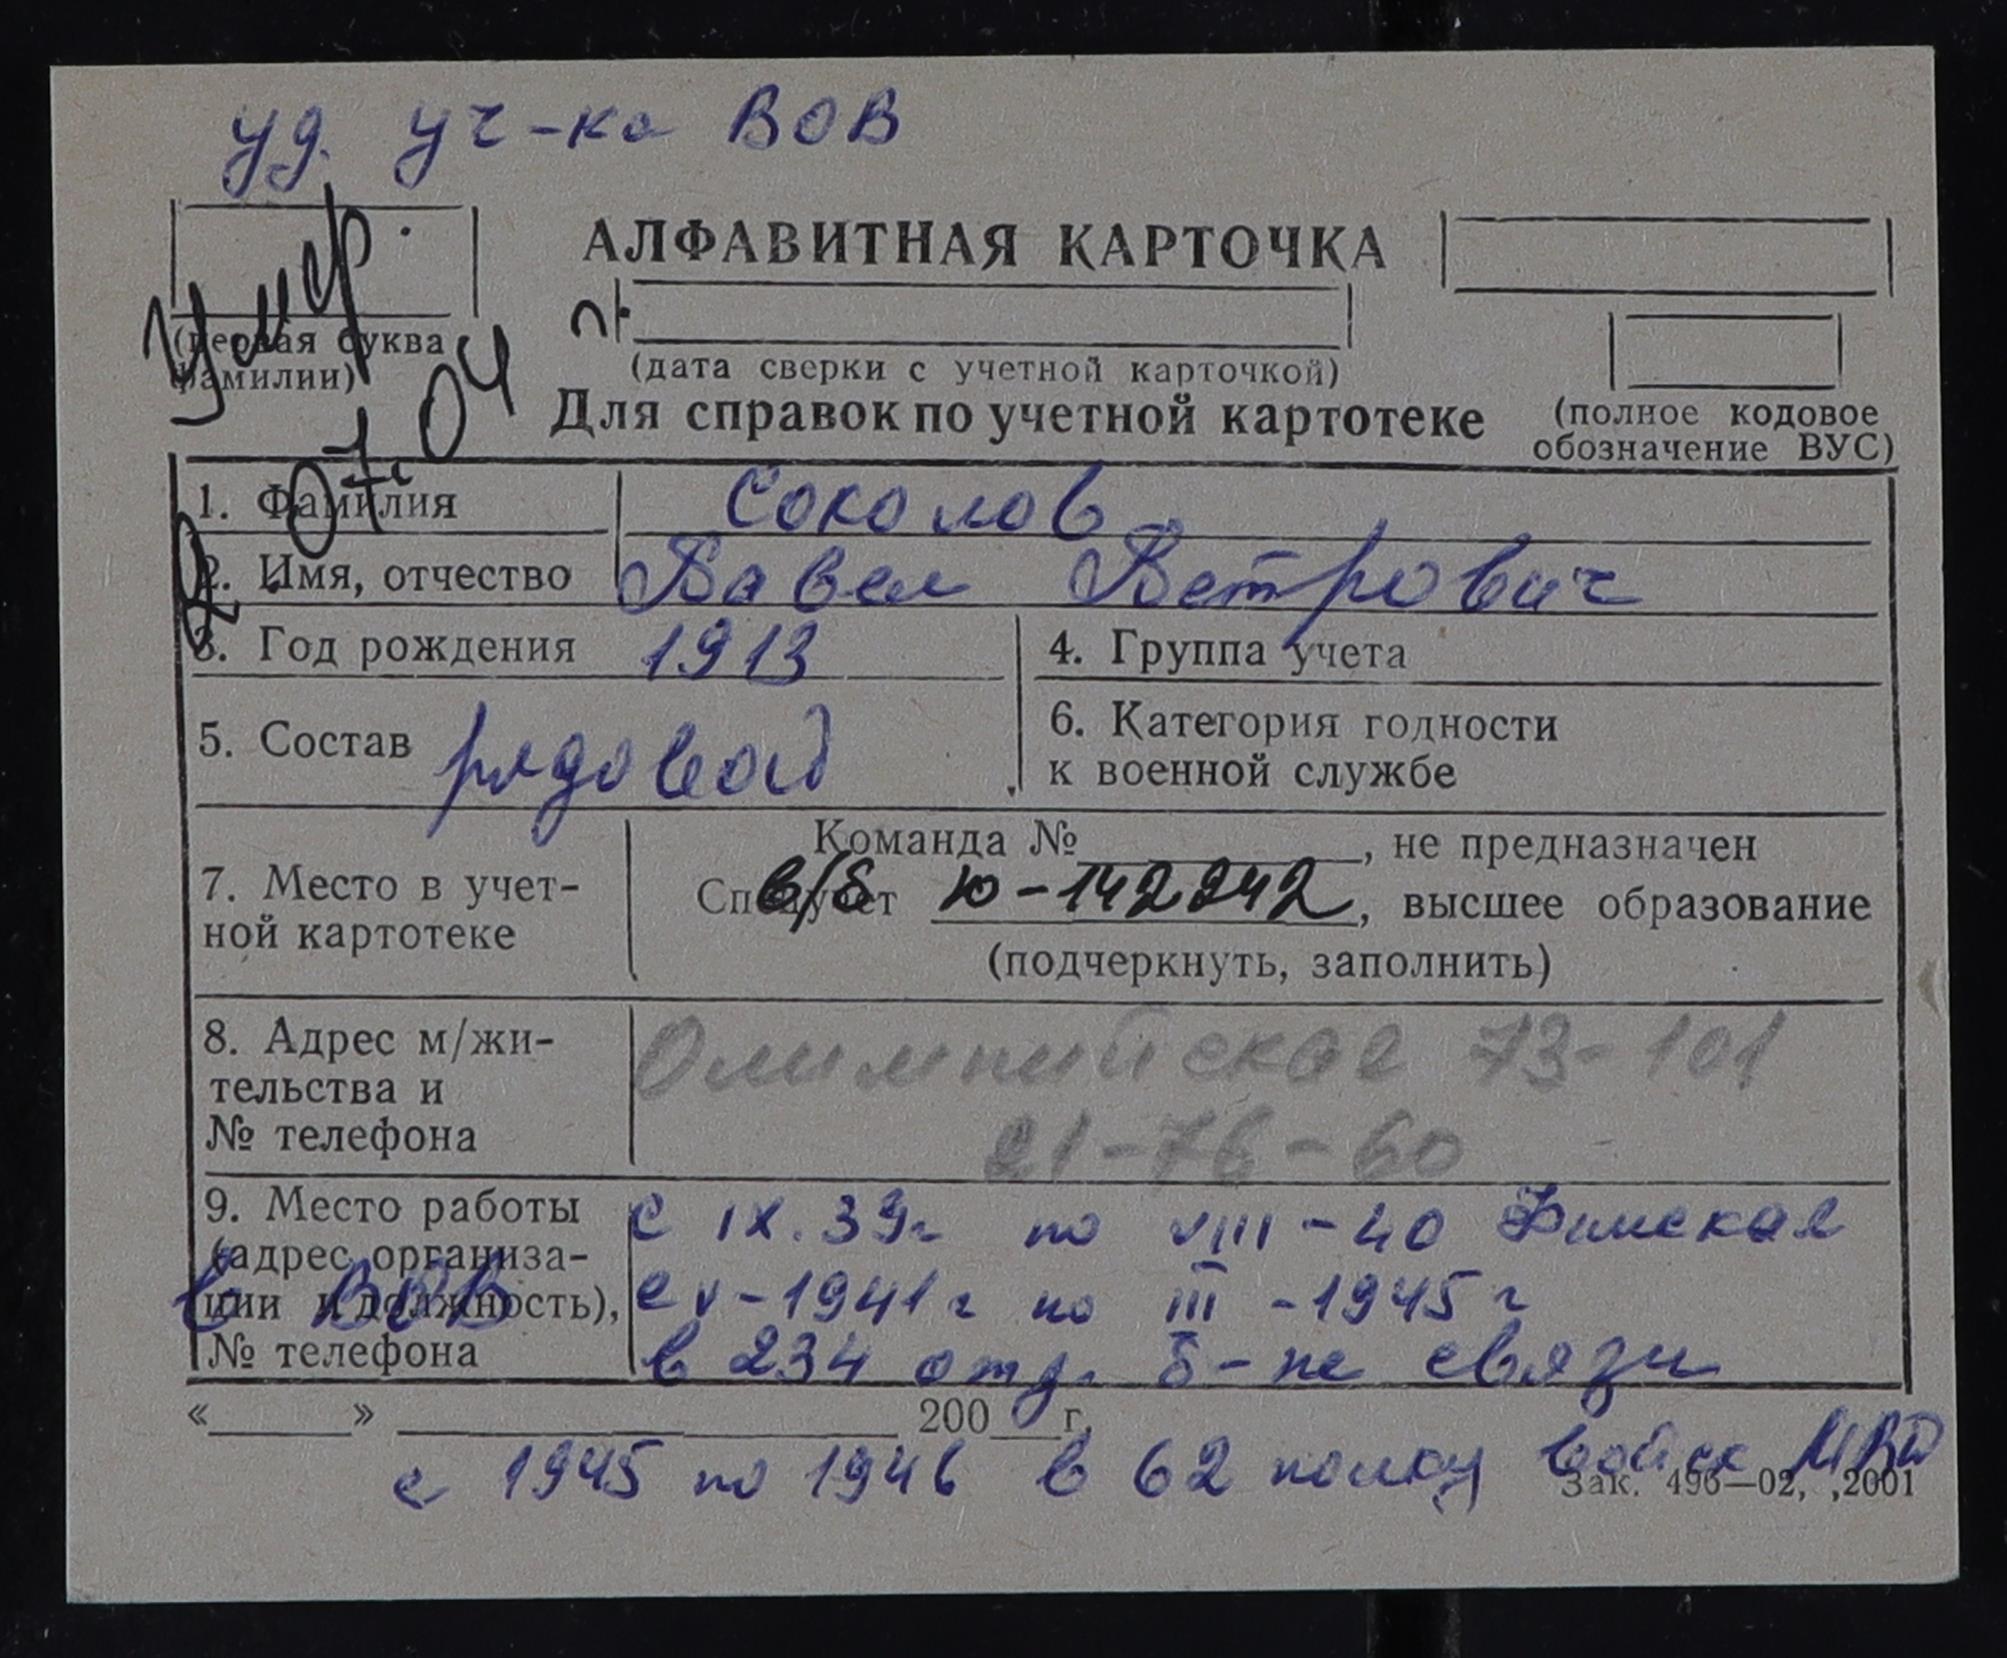 уд. уч-ка ВОВ
АЛФАВИТНАЯ КАРТОЧКА
Умер.
07.04
(первая буква фамилии)
(дата сверки с учетной карточкой)
Для справок по учетной картотеке
(полное кодовое обозначение ВУС)
1. Фамилия Соколов
2. Имя, отчество Павел Петрович
3. Год рождения 1913
4. Группа учета
5. Состав рядовой
6. Категория годности
к военной службе
7. Место в учет-
ной картотеке
Команда №, не предназначен
Спецучет в/б Ю-142242, высшее образование
(подчеркнуть, заполнить)
8. Адрес м/жи-
тельства и
№ телефона
Олимпийская 73-101
21-76-60
9. Место работы
(адрес организа-
ции и должность),
№ телефона
в ВОВ
с IX.39г по VIII-40 Финская
с V-1941г по III-1945г
в 234 отд. б-не связи
« » 200 г.
с 1945 по 1946 в 62 полку войск МВД
Зак. 496—02, ,2001